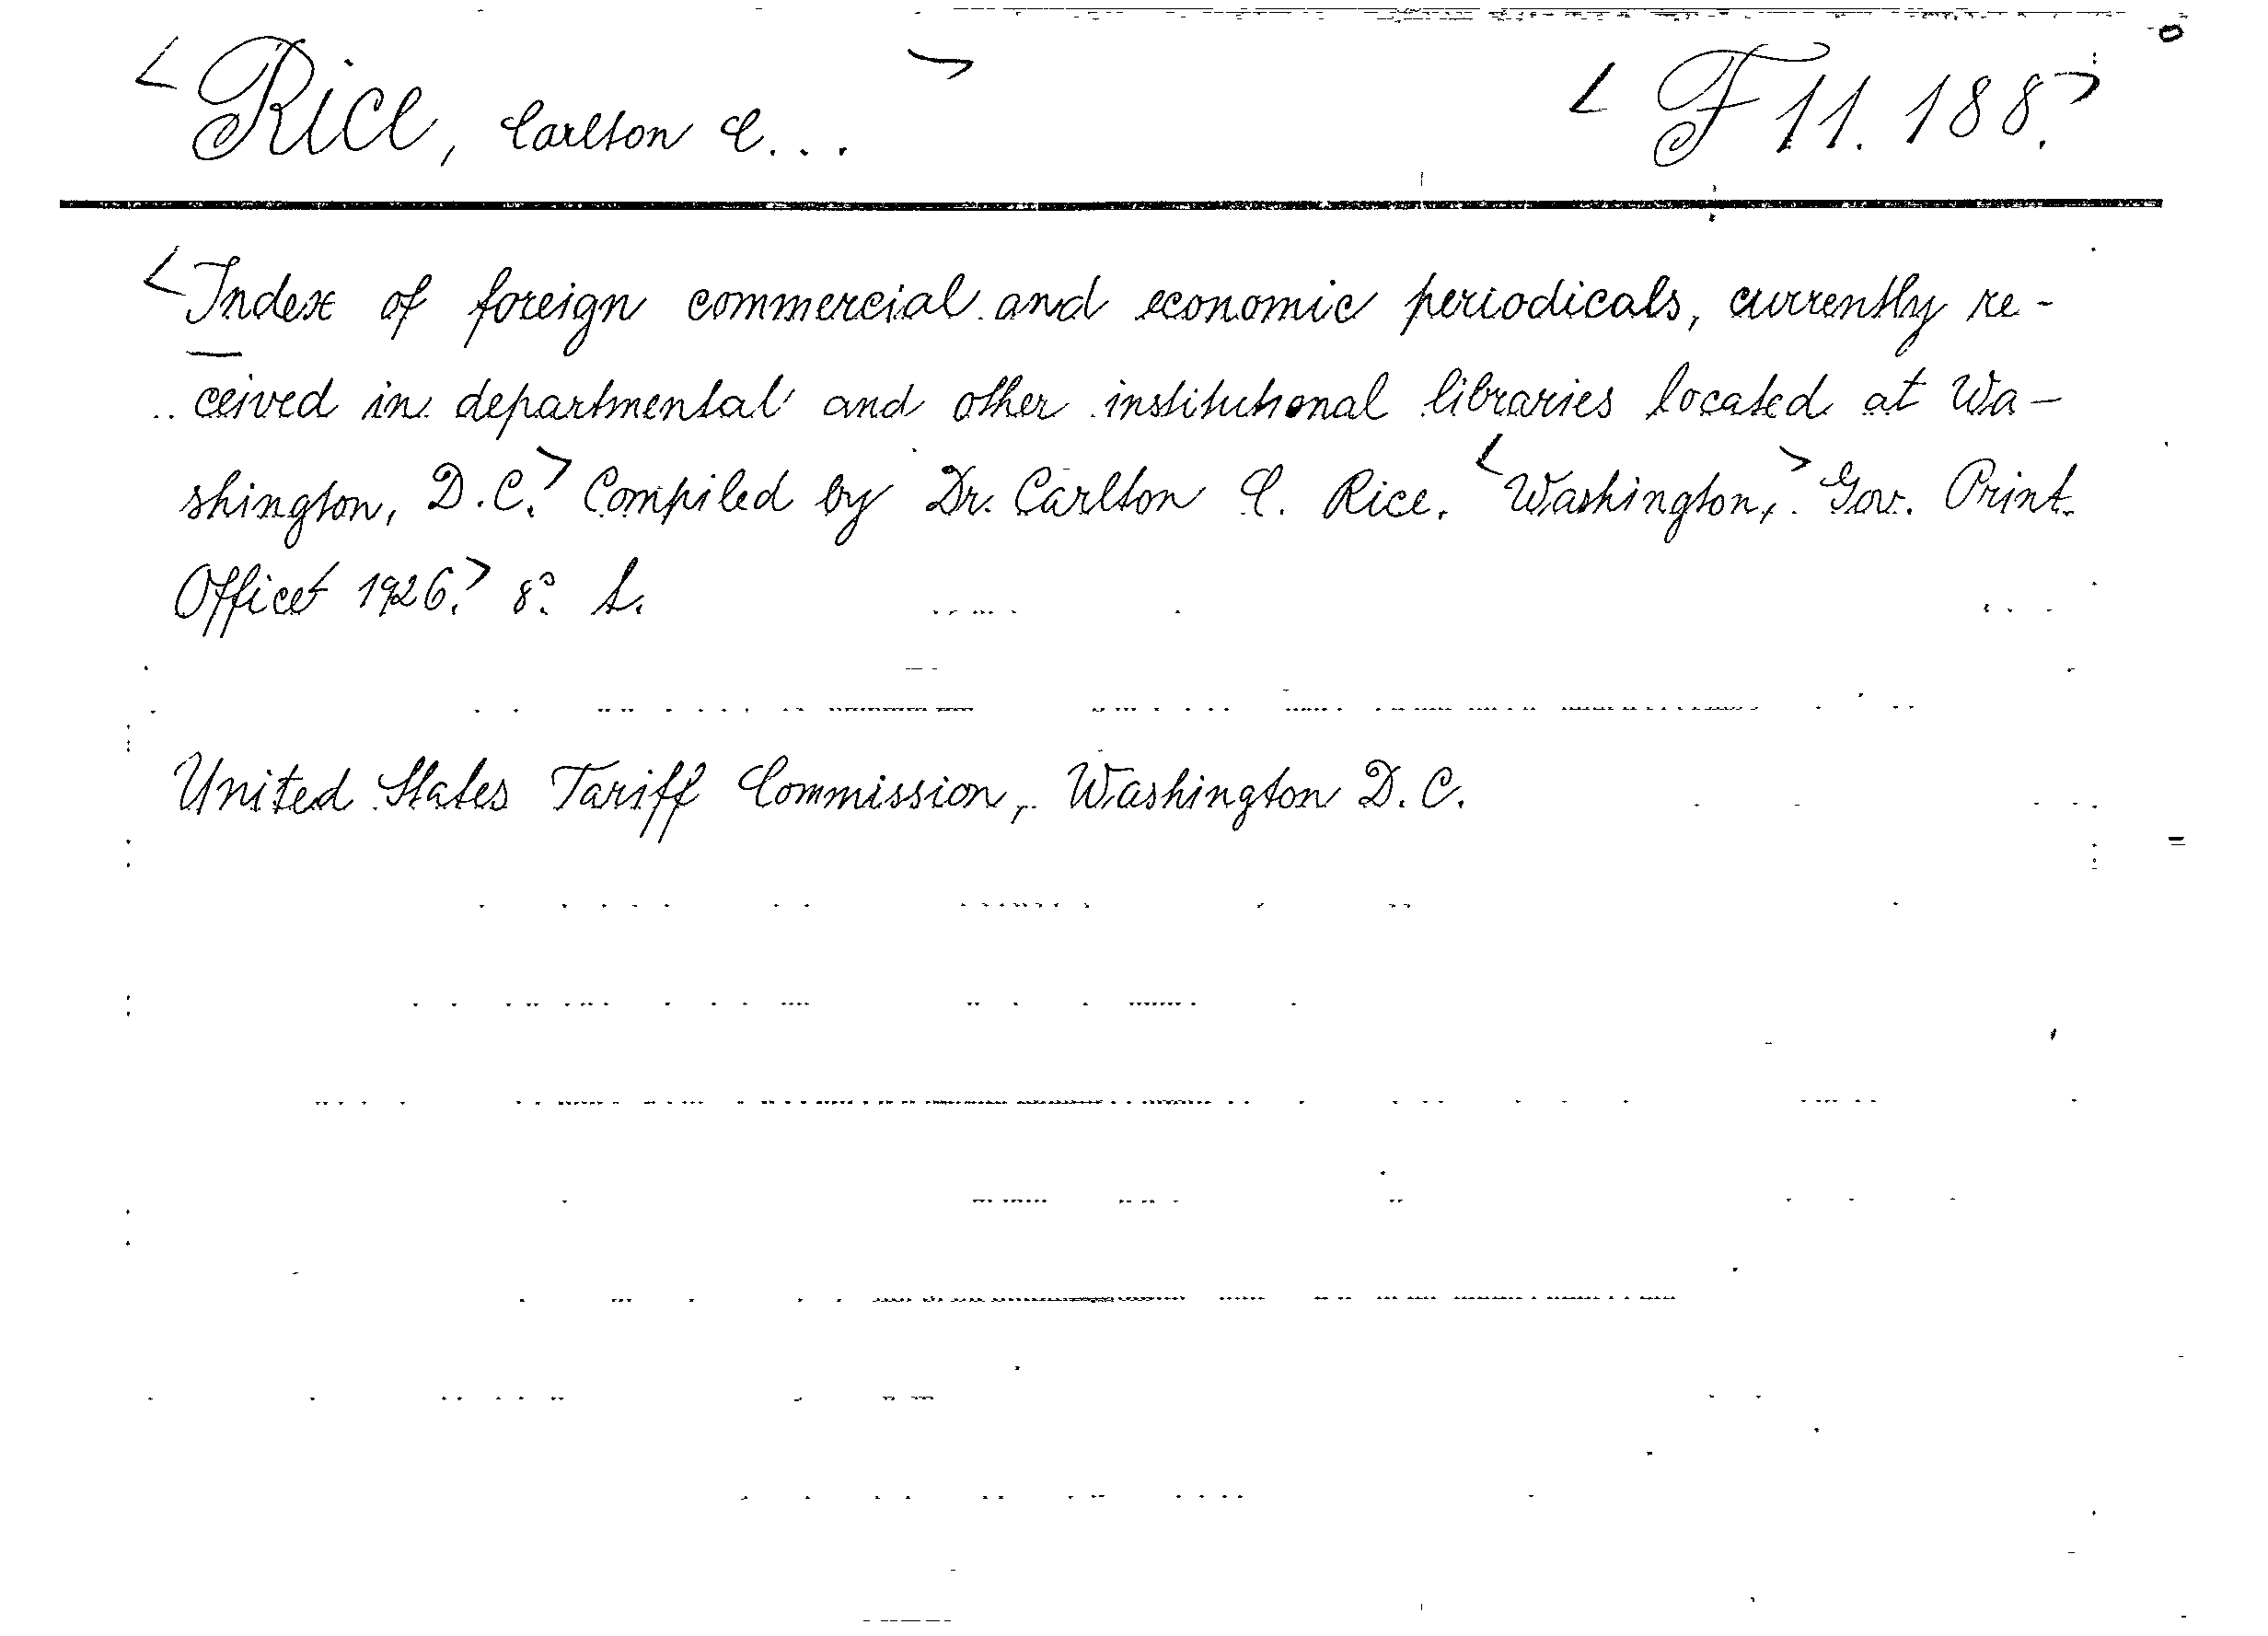 <Rice, Carlton C...> <F 11. 188.>
<Index of foreign commercial and economic periodicals, currently re-
ceived in departmental and other institutional libraries located at Wa-
shington, D.C.> Compiled by Dr. Carlton C. Rice. <Washington,> Gov. Print.
Office 1926.> 8°.
United States Tariff Commission, Washington D.C.